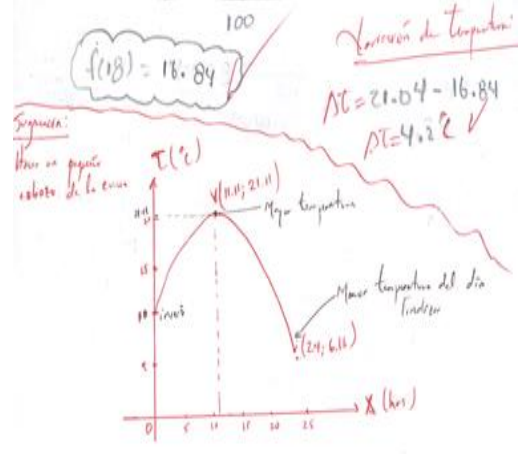 100
f(18) = 16.84
Variación de temperatura:
ΔT = 21.04 - 16.84
ΔT = 4.2 °C
Sugerencia:
Hacer un pequeño
esbozo de la curva
T (°C)
V(11.11; 21.11)
Mayor temperatura
15
10
inicio
5
Menor temperatura del día
(24; 6.16)
0 5 10 15 20 25
X (hrs)